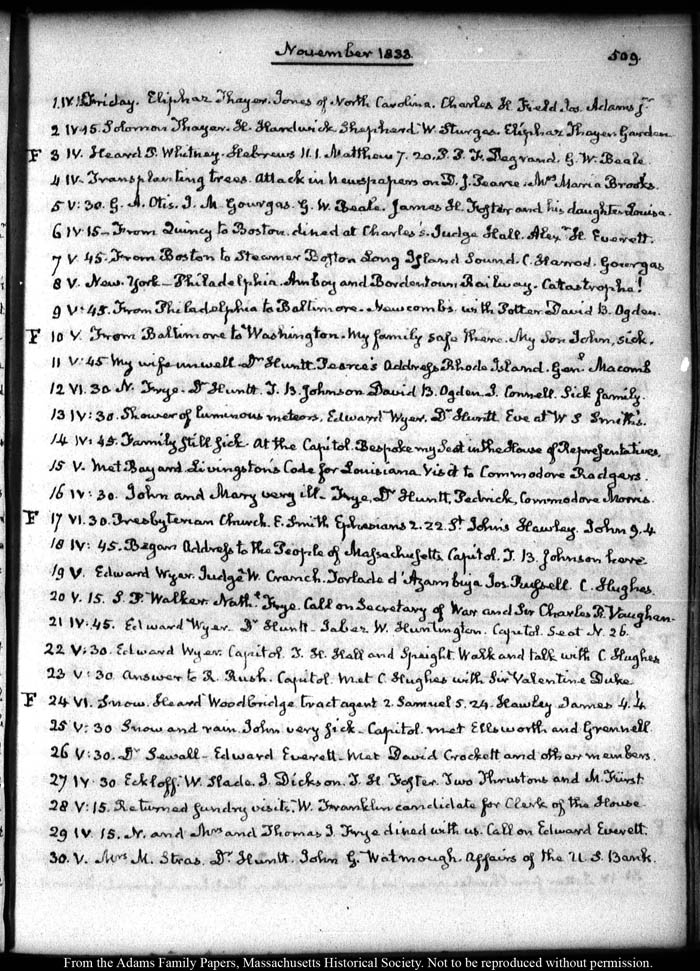 November 1833.
509.
1. IV: Friday. Eliphaz Thayer. Jones of North Carolina. Charles H. Field. Jos. Adams Jr.
2 IV:45. Solomon Thayer. H. Hardwick. Shepherd W. Sturges. Eliphaz Thayer Garden
F 3 IV. Heard P. Whitney. Hebrews 11.1. Matthew 7.20. P. P. F. Degrand. G. W. Beale.
4 IV. Transplanting trees. Attack in Newspapers on D. J. Pearce. Mrs Maria Brooks.
5 V:30. G. A. Otis. J. M. Gourgas. G. W. Beale. James H. Foster and his daughter Louisa.
6 IV:15. From Quincy to Boston. dined at Charles's. Judge Hall. Alexr. H. Everett.
7 V:45. From Boston to Steamer Boston Long Island Sound. C. Harrod. Gourgas
8 V. New-York—Philadelphia. Amboy and Bordentown Railway. Catastrophe!
9 V:45. From Philadelphia to Baltimore. Newcombs with Potter David B. Ogden.
F 10 V. From Baltimore to Washington. My family safe there. My Son John, sick.
11 V:45 My wife unwell. Dr Huntt. Pearce's Address, Rhode Island. Genl. Macomb
12 VI.30 N. Frye. Dr Huntt. J. B. Johnson David B. Ogden. J. Connell. Sick family.
13 IV:30. Shower of luminous meteors. Edward Wyer. Dr Huntt Eve at W S Smith's.
14 IV:45. Family still sick. At the Capitol. Bespoke my Seat in the House of Representatives.
15 V. Met Bayard. Livingston's Code for Louisiana. Visit to Commodore Rodgers.
16 IV:30. John and Mary very ill. Frye, Dr Huntt, Pedrick, Commodore Morris.
F 17 VI.30. Presbyterian Church. E. Smith Ephesians 2.22. St John's Hawley. John 9.4
18 IV:45. Began Address to the People of Massachusetts. Capitol. J. B. Johnson here
19 V. Edward Wyer. Judge W. Cranch. Torlade d'Azambuja Jos. Russell. C. Hughes.
20 V.15. S. P. Walker. Nathl. Frye. Call on Secretary of War and Sir Charles R. Vaughan.
21 IV:45. Edward Wyer. Dr Huntt. Jabez W. Huntington. Capitol. Seat N. 26.
22 V:30. Edward Wyer. Capitol. T. H. Hall and Speight. Walk and talk with C Hughes
23 V:30 Answer to R. Rush. Capitol. Met C Hughes with Sir Valentine Duke
F 24 VI. Snow. Heard Woodbridge tract agent 2. Samuel 5.24. Hawley James 4.4
25 V:30 Snow and rain. John very sick. Capitol. met Ellsworth and Grennell.
26 V:30. Dr Sewall. Edward Everett. Met David Crockett and other members.
27 IV:30 Eckloff. W. Slade. J. Dickson. J. H. Foster. Two Thrustons and M. Fürst
28 V:15. Returned sundry visits. W. Franklin candidate for Clerk of the House
29 IV 15. N. and Mrs and Thomas J. Frye dined with us. Call on Edward Everett.
30. V. Mrs M. Stras. Dr Huntt. John G. Watmough. Affairs of the U. S. Bank.
From the Adams Family Papers, Massachusetts Historical Society. Not to be reproduced without permission.